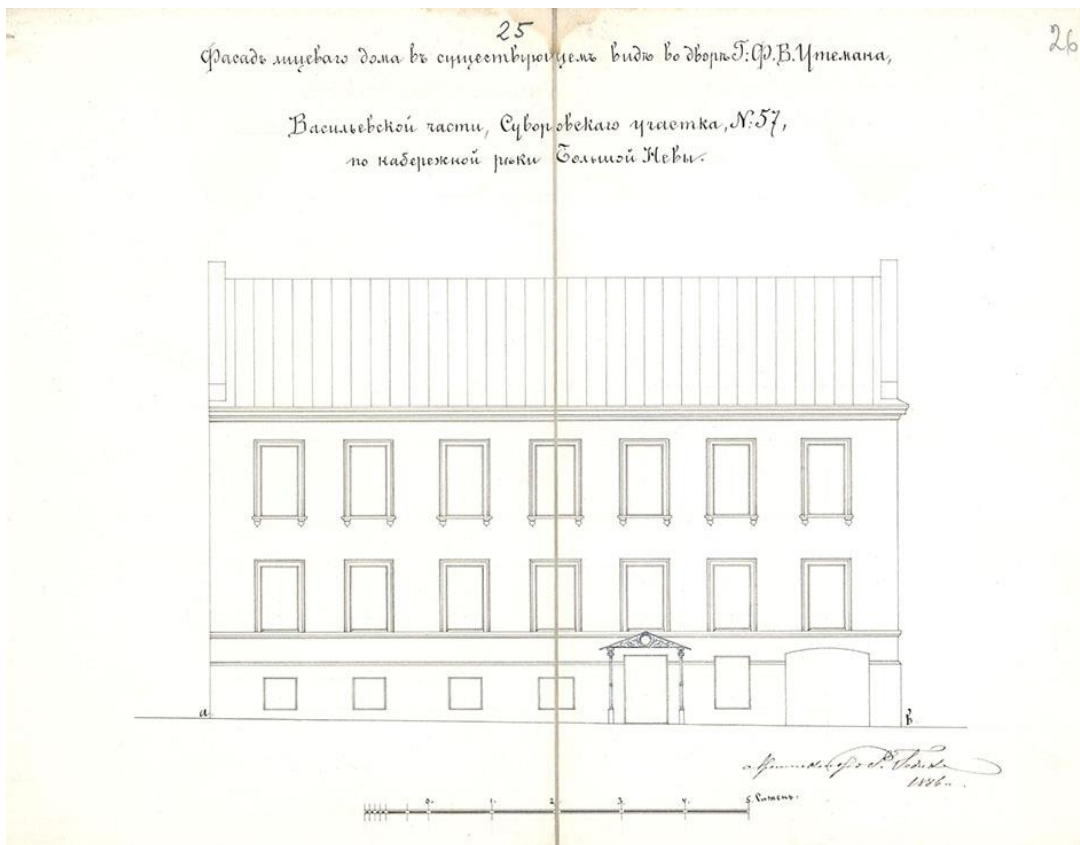 25
26
Фасадъ лицеваго дома въ существующемъ видѣ во дворѣ Г: Ф. В. Утемана,
Васильевской части, Суворовскаго участка, №: 57,
по набережной рѣки Большой Невы.
а.
в.
Архитекторъ Р.
1886 г.
0. 1. 2. 3. 4. 5. Сажень.